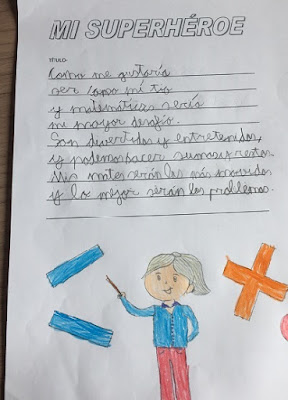 MI SUPERHÉROE
TÍTULO:
Como me gustaría
ser como mi tía
y matemáticas sería
mi mayor desafío.
Son divertidas y entretenidas,
y podemos hacer sumas y restas.
Mis mates serán las más movidas
y lo mejor serán los problemas.